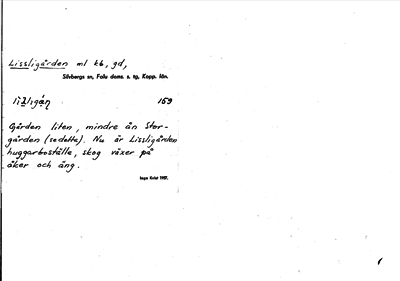 Lissligården ml kb, gd,
Silvbergs sn, Falu doms. s. tg, Kopp. län.
159
Gården liten, mindre än Stor-
gården (se detta). Nu är Lissligården
huggarboställe, skog växer på
åker och äng.
Inga Kvist 1937.